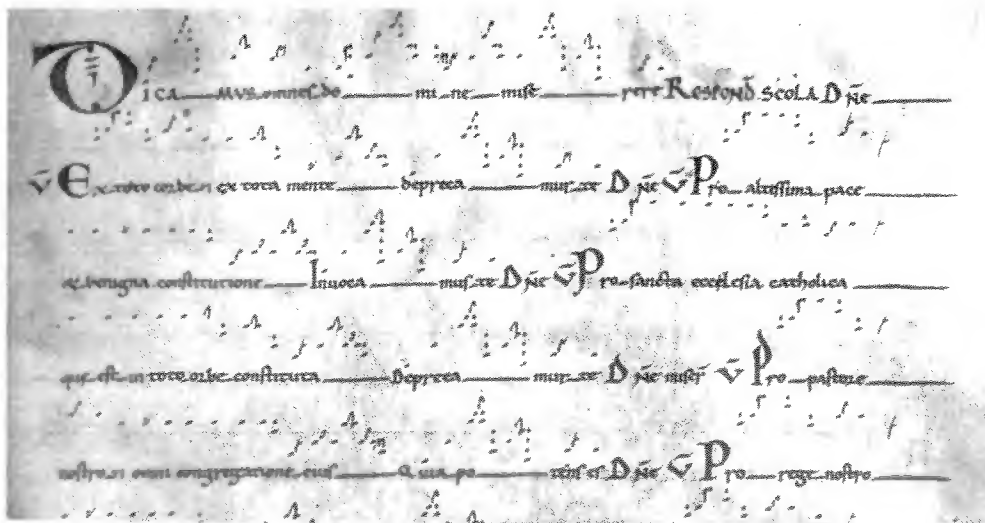 DICAMVS omnes domine misererere RESPOND SCOLA Dñe
V̄ Ex toto corde si ex tota mente depreca mur te Dñe V̄ Pro altissima pace
ac benigna constitucione Invoca mus te Dñe V̄ Pro sancta ecclesia catholica
que est in toto orbe constituta Depreca mur te Dñe miser V̄ Pro pastore
nostro si omni congregacione eius Quia po tens es Dñe V̄ Pro rege nostro